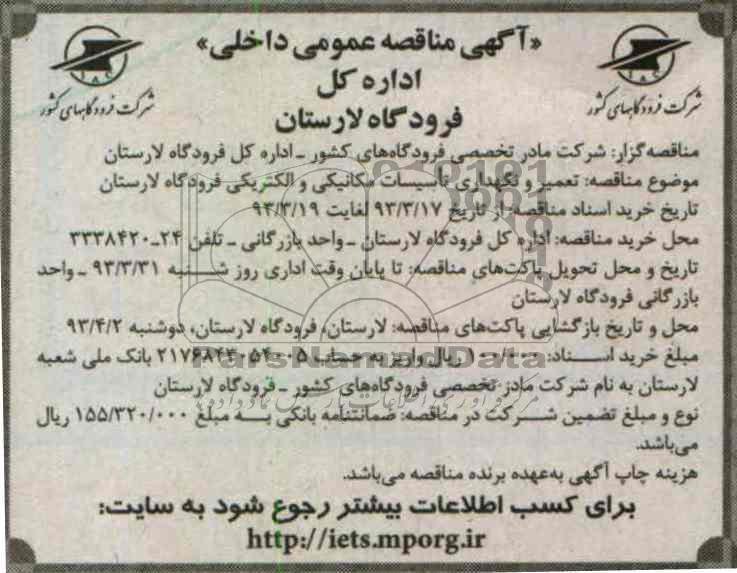 «آگهی مناقصه عمومی داخلی»
اداره کل
فرودگاه لارستان
IAC
شرکت فرودگاههای کشور
IAC
شرکت فرودگاههای کشور
مناقصه‌گزار: شرکت مادر تخصصی فرودگاه‌های کشور ـ اداره کل فرودگاه لارستان
موضوع مناقصه: تعمیر و نگهداری تأسیسات مکانیکی و الکتریکی فرودگاه لارستان
تاریخ خرید اسناد مناقصه: از تاریخ ۹۳/۳/۱۷ لغایت ۹۳/۳/۱۹
محل خرید مناقصه: اداره کل فرودگاه لارستان ـ واحد بازرگانی ـ تلفن ۲۴ـ۳۳۳۸۴۲۰
تاریخ و محل تحویل پاکت‌های مناقصه: تا پایان وقت اداری روز شنبه ۹۳/۳/۳۱ ـ واحد
بازرگانی فرودگاه لارستان
محل و تاریخ بازگشایی پاکت‌های مناقصه: لارستان، فرودگاه لارستان، دوشنبه ۹۳/۴/۲
مبلغ خرید اسناد: ۱۰۰/۰۰۰ ریال واریز به حساب بانک ملی شعبه
لارستان به نام شرکت مادر تخصصی فرودگاه‌های کشور ـ فرودگاه لارستان
نوع و مبلغ تضمین شرکت در مناقصه: ضمانتنامه بانکی به مبلغ ۱۵۵/۳۲۰/۰۰۰ ریال
می‌باشد.
هزینه چاپ آگهی به‌عهده برنده مناقصه می‌باشد.
برای کسب اطلاعات بیشتر رجوع شود به سایت:
http://iets.mporg.ir
ParsNamadData